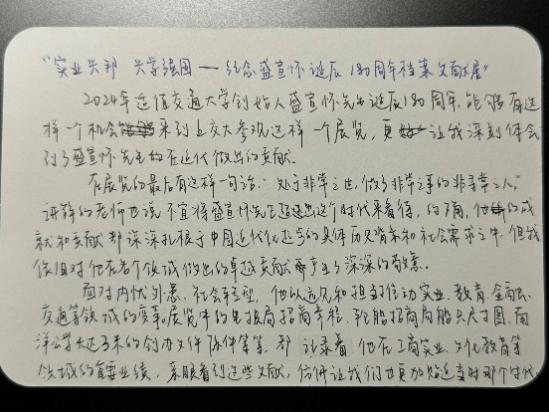 "实业兴邦 兴学强国——纪念盛宣怀诞辰180周年档案文献展"
2024年适值交通大学创始人盛宣怀先生诞辰180周年,能够有这
样一个机会来到上交大参观这样一个展览,更让我深刻体会
到了盛宣怀先生的在近代做出的贡献。
在展览的最后有这样一句话:"处于非常之世,做了非常之事的非常之人。"
讲解的老师也说不宜将盛宣怀先生这个时代来看待,的确,他的成
就和贡献都深深扎根于中国近代化进步的具体历史背景和社会需求之中。但我
依旧对他在各个领域做出的卓越贡献产生了深深的敬意。
面对内忧外患、社会转型,他以远见和担当推动实业、教育、金融、
交通等领域的变革。展览中的电报局招商章程、轮船招商局船只尺寸图、南
洋公学的创办文件原件等等,都记录着他在工商实业、文化教育等
领域的重要业绩,亲眼看到这些文献,仿佛让我们也更加贴近当时那个时代